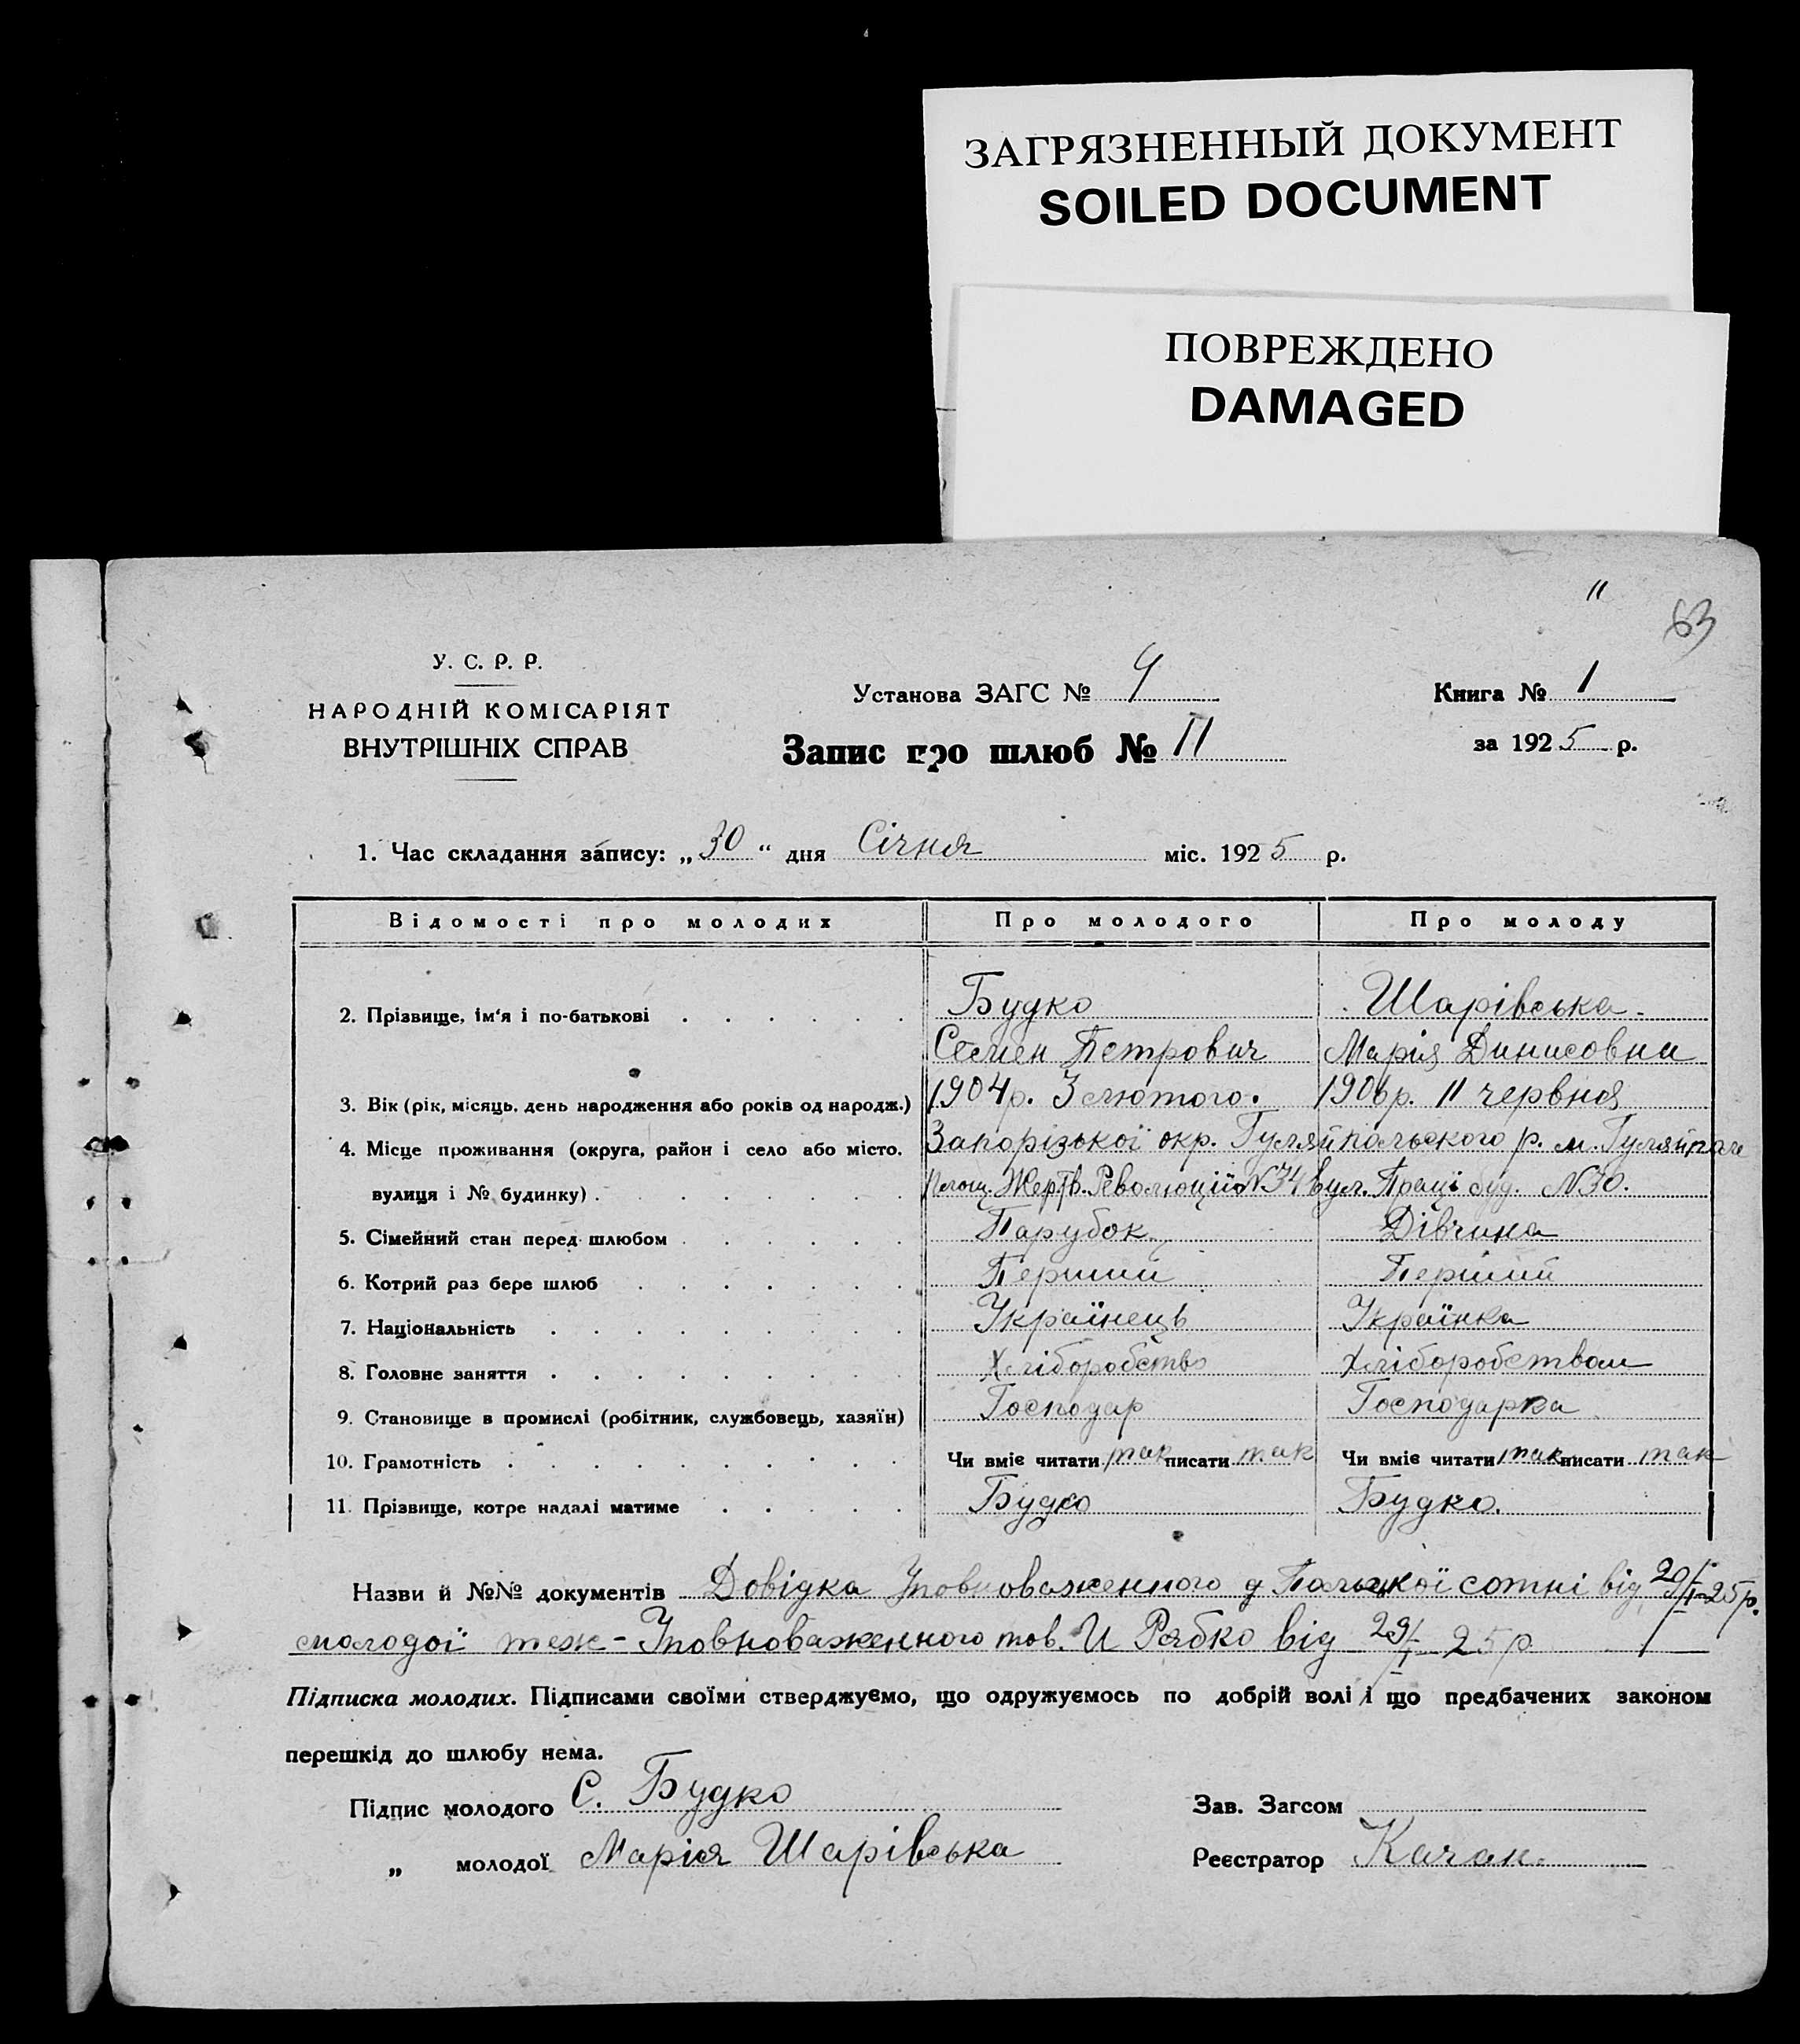 ЗАГРЯЗНЕННЫЙ ДОКУМЕНТ
SOILED DOCUMENT
ПОВРЕЖДЕНО
DAMAGED
11
63
У. С. Р. Р.
НАРОДНІЙ КОМІСАРІЯТ
ВНУТРІШНІХ СПРАВ
Установа ЗАГС № 9
Запис про шлюб № 11
Книга № 1
за 1925 р.
1. Час складання запису: „30“ дня Січня міс. 1925 р.
Відомості про молодих Про молодого Про молоду
2. Прізвище, ім'я і по-батькові Будко Шарівська
Семен Петрович Марія Динисовна
3. Вік (рік, місяць, день народження або років од народж.) 1904 р. 3 лютого. 1906 р. 11 червня
4. Місце проживання (округа, район і село або місто. Запорізької окр. Гуляйпольского р. м. Гуляйполе
вулиця і № будинку) Площ. Жертв. Революції №34 вул. Праці буд. №30.
5. Сімейний стан перед шлюбом Парубок Дівчина
6. Котрий раз бере шлюб Перший Перший
7. Національність Українець Українка
8. Головне заняття Хліборобство Хліборобством
9. Становище в промислі (робітник, службовець, хазяїн) Господар Господарка
10. Грамотність Чи вміє читати так писати так Чи вміє читати так писати так
11. Прізвище, котре надалі матиме Будко Будко.
Назви й №№ документів Довідка Уповноваженного сотні від 29/I-25р.
молодої теж - Уповноваженного тов. И Рябко від 29/I 25 р
Підписка молодих. Підписами своїми стверджуємо, що одружуємось по добрій волі і що предбачених законом
перешкід до шлюбу нема.
Підпис молодого С. Будко
Зав. Загсом
„ молодої Марія Шарівська
Реєстратор Качан